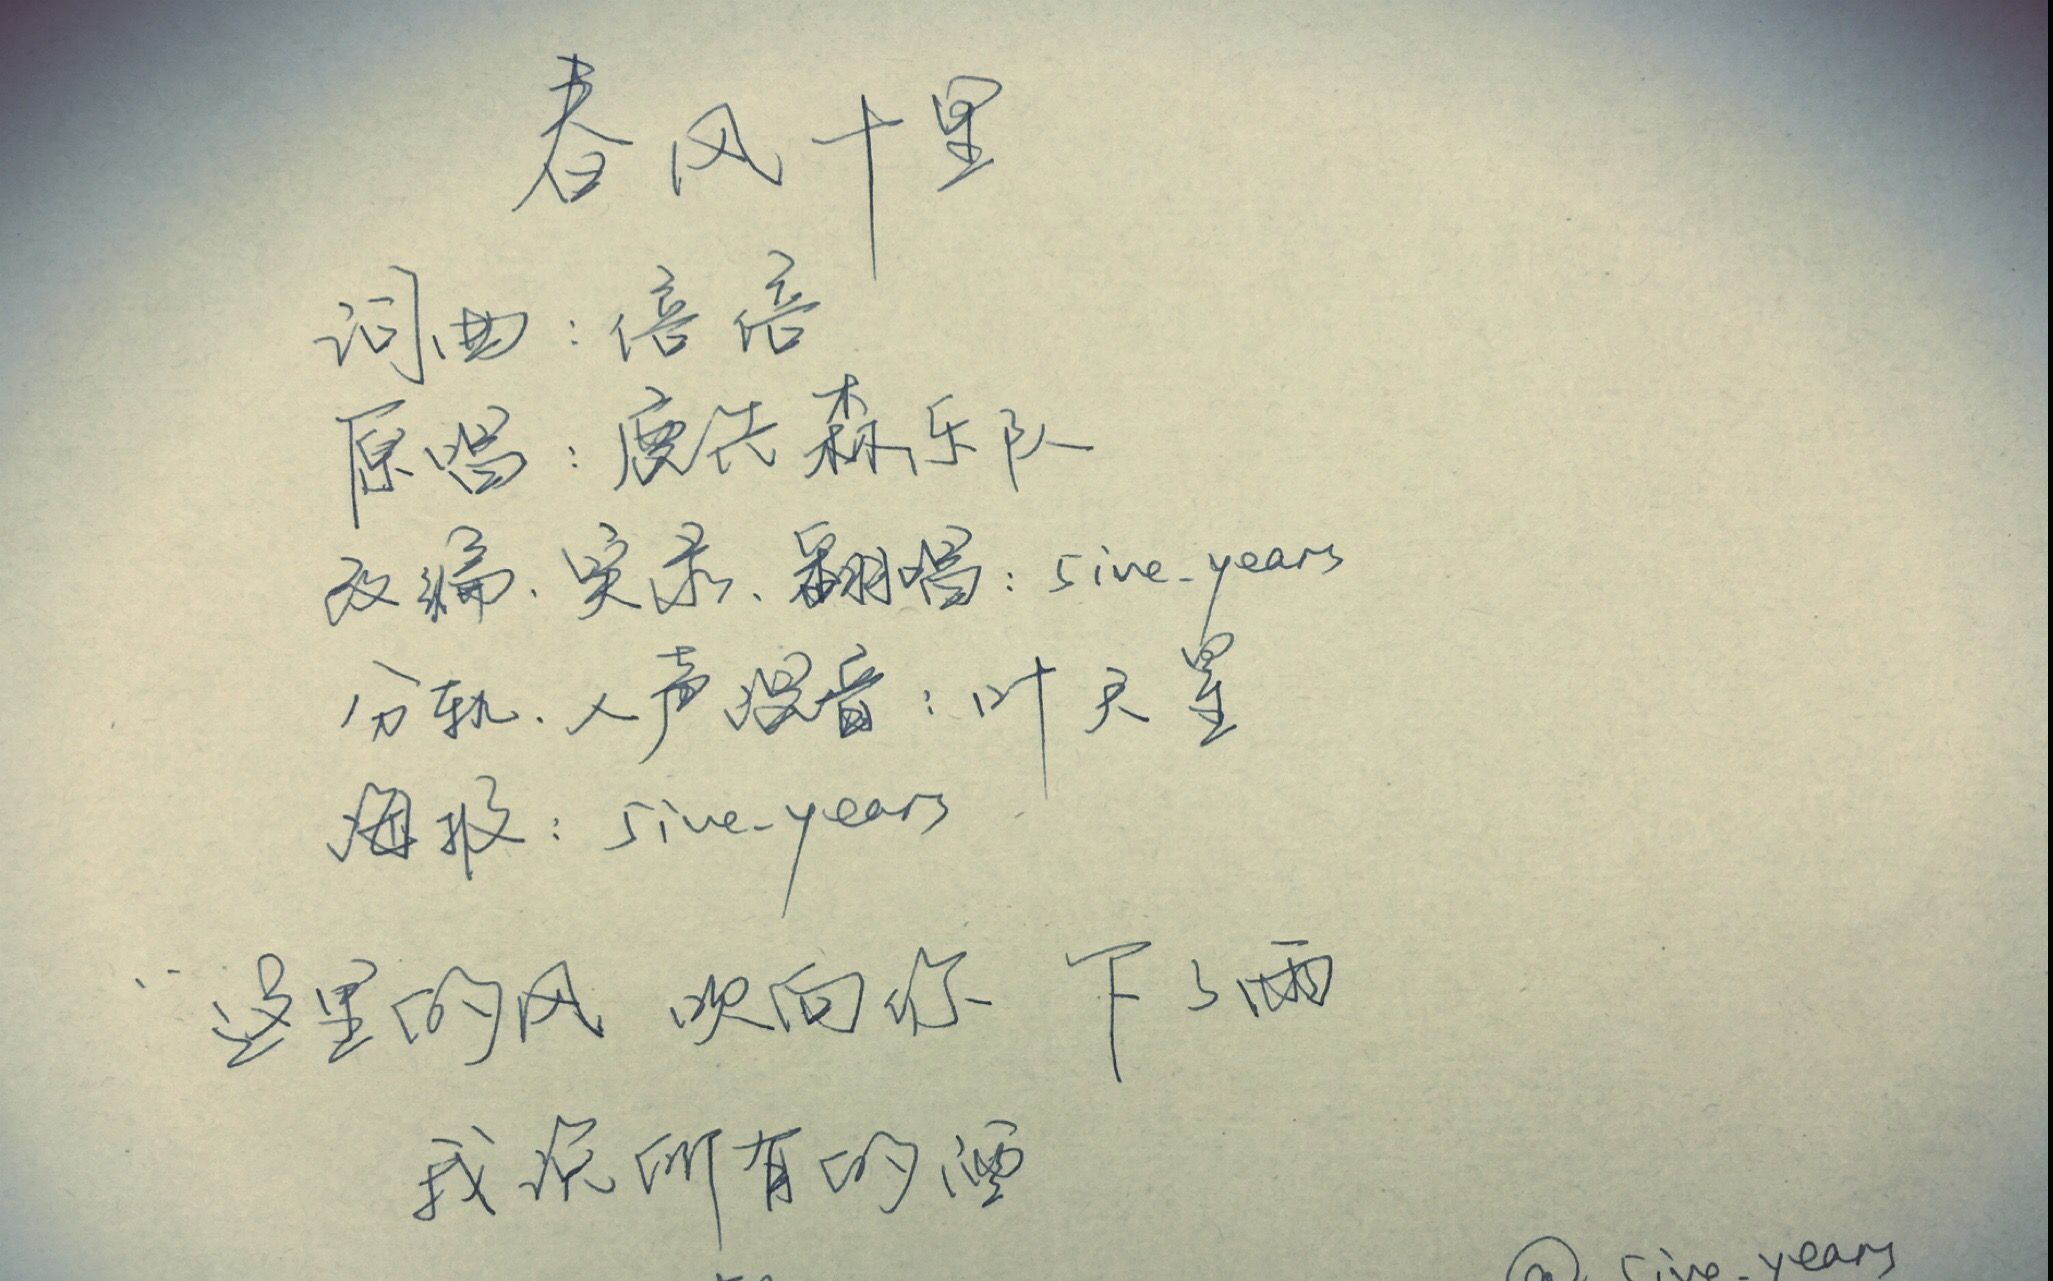 春风十里
词曲：倍倍
原唱：鹿先森乐队
改编、实录、翻唱：5ive_years
分轨、人声混音：叶天星
海报：5ive_years
“这里的风 吹向你 下了雨
我说所有的酒
@5ive_years